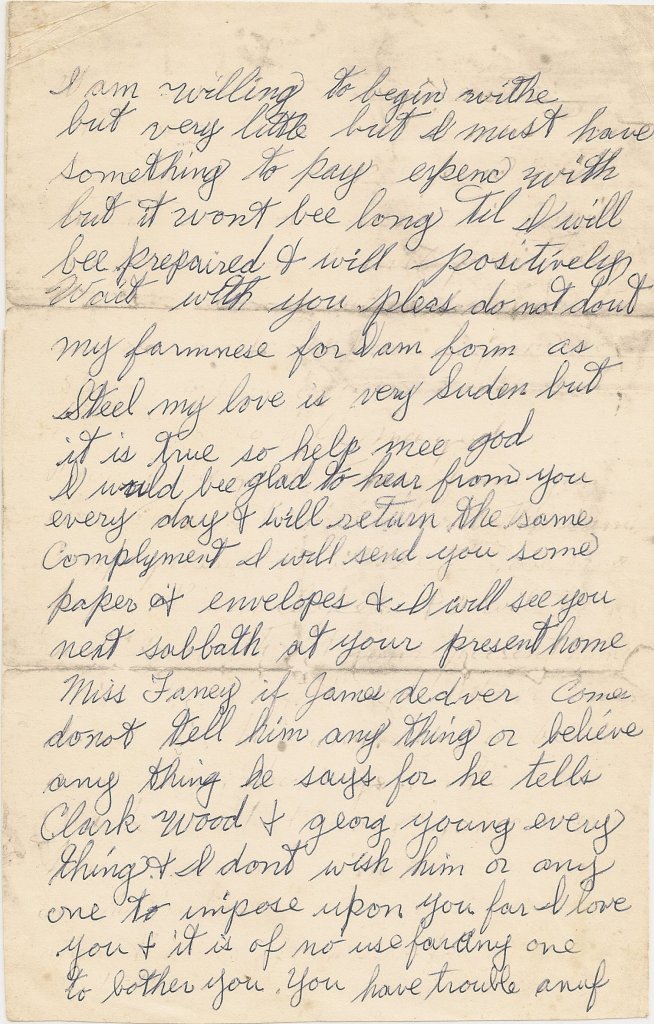 I am willing to begin withe
but very little but I must have
something to pay expenc with
but it wont bee long til I will
bee prepaired & will positively
Wait with you pleas do not dout
my farmnese for I am form as
Steel my love is very Suden but
it is true so help mee god
I would bee glad to hear from you
every day & will return the same
Complyment I will send you some
paper & envelopes & I will see you
next sabbath at your present home
Miss Faney if James dedver Comes
donot tell him any thing or believe
any thing he says for he tells
Clark Wood & georg young every
thing & I dont wish him or any
one to impose upon you for I love
you & it is of no use for any one
to bother you. You have trouble anuf